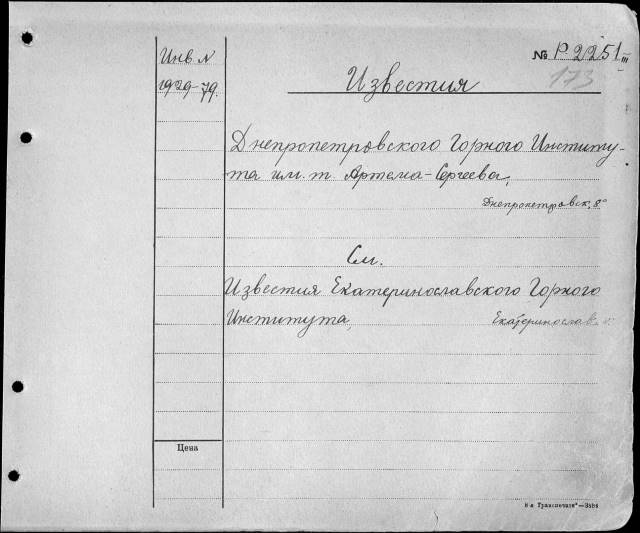 Инв. №
1929-79.
№ Р 2251 III
173
Известия
Днепропетровского Горного Институ-
та им. т. Артема-Сергеева,
Днепропетровск, 8°
См.
Известия Екатеринославского Горного
Института,
Екатеринослав.
Цена
Транспечати"—3586